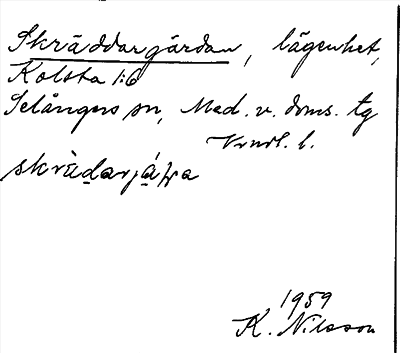 Skräddargårdan, lägenhet,
Kolsta 1:6
Selångers sn, Med. v. doms. tg
l.
skrädarjáḷa
1959
K. Nilsson